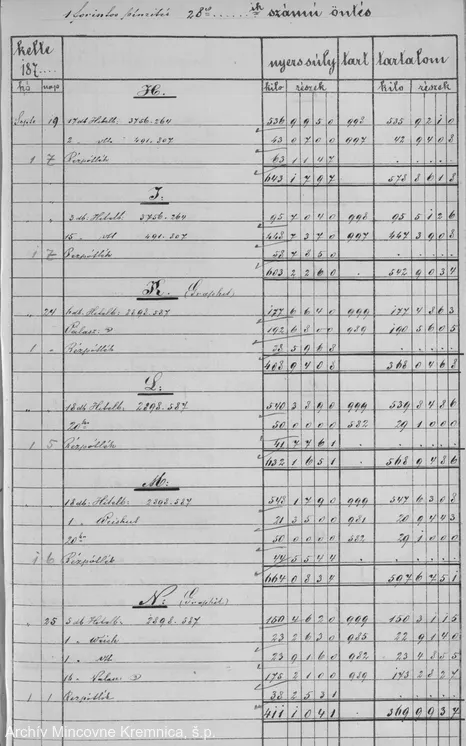 1 forintos pénzekü 28-.......ik számú öntés
kelte 187.... nyerssúly tart tartalom
hó nap kilo részek kilo részek
H.
Sept. 19 17 db Hitelb. 3756.264 536 9950 998 535 9210
2 " 491.307 43 0700 997 42 9408
1 7 Rézpótlék 63 1147
643 1797 578 8618
J.
3 db Hitelb. 3756.264 95 7040 998 95 5126
15 " 491.307 448 7370 997 447 3908
1 7 Rézpótlék 58 7850
603 2260 542 9034
K. (Graphit)
" 24 6 db Hitelb. 2898.587 177 6640 999 177 4863
192 6800 989 190 5605
1 " Rézpótlék 38 5968
408 9408 368 0468
L.
" " 18 db Hitelb. 2898.587 540 3890 999 539 8486
20 50 0000 582 29 1000
1 5 Rézpótlék 41 7761
632 1651 568 9486
M.
" " 18 db. Hitelb. 2898.587 548 1790 999 547 6308
1 " 21 3500 981 20 9443
20 50 0000 582 29 1000
1 6 Rézpótlék 44 5544
664 0834 597 6751
N. (Graphit)
" 25 5 db Hitelb. 2898.587 150 4620 999 150 3115
1 " 23 2630 985 22 9140
1 " 23 9160 982 23 4855
16 " 175 2100 989 173 2827
1 1 Rézpótlék 38 2531
411 1041 369 9937
Archív Mincovne Kremnica, š.p.